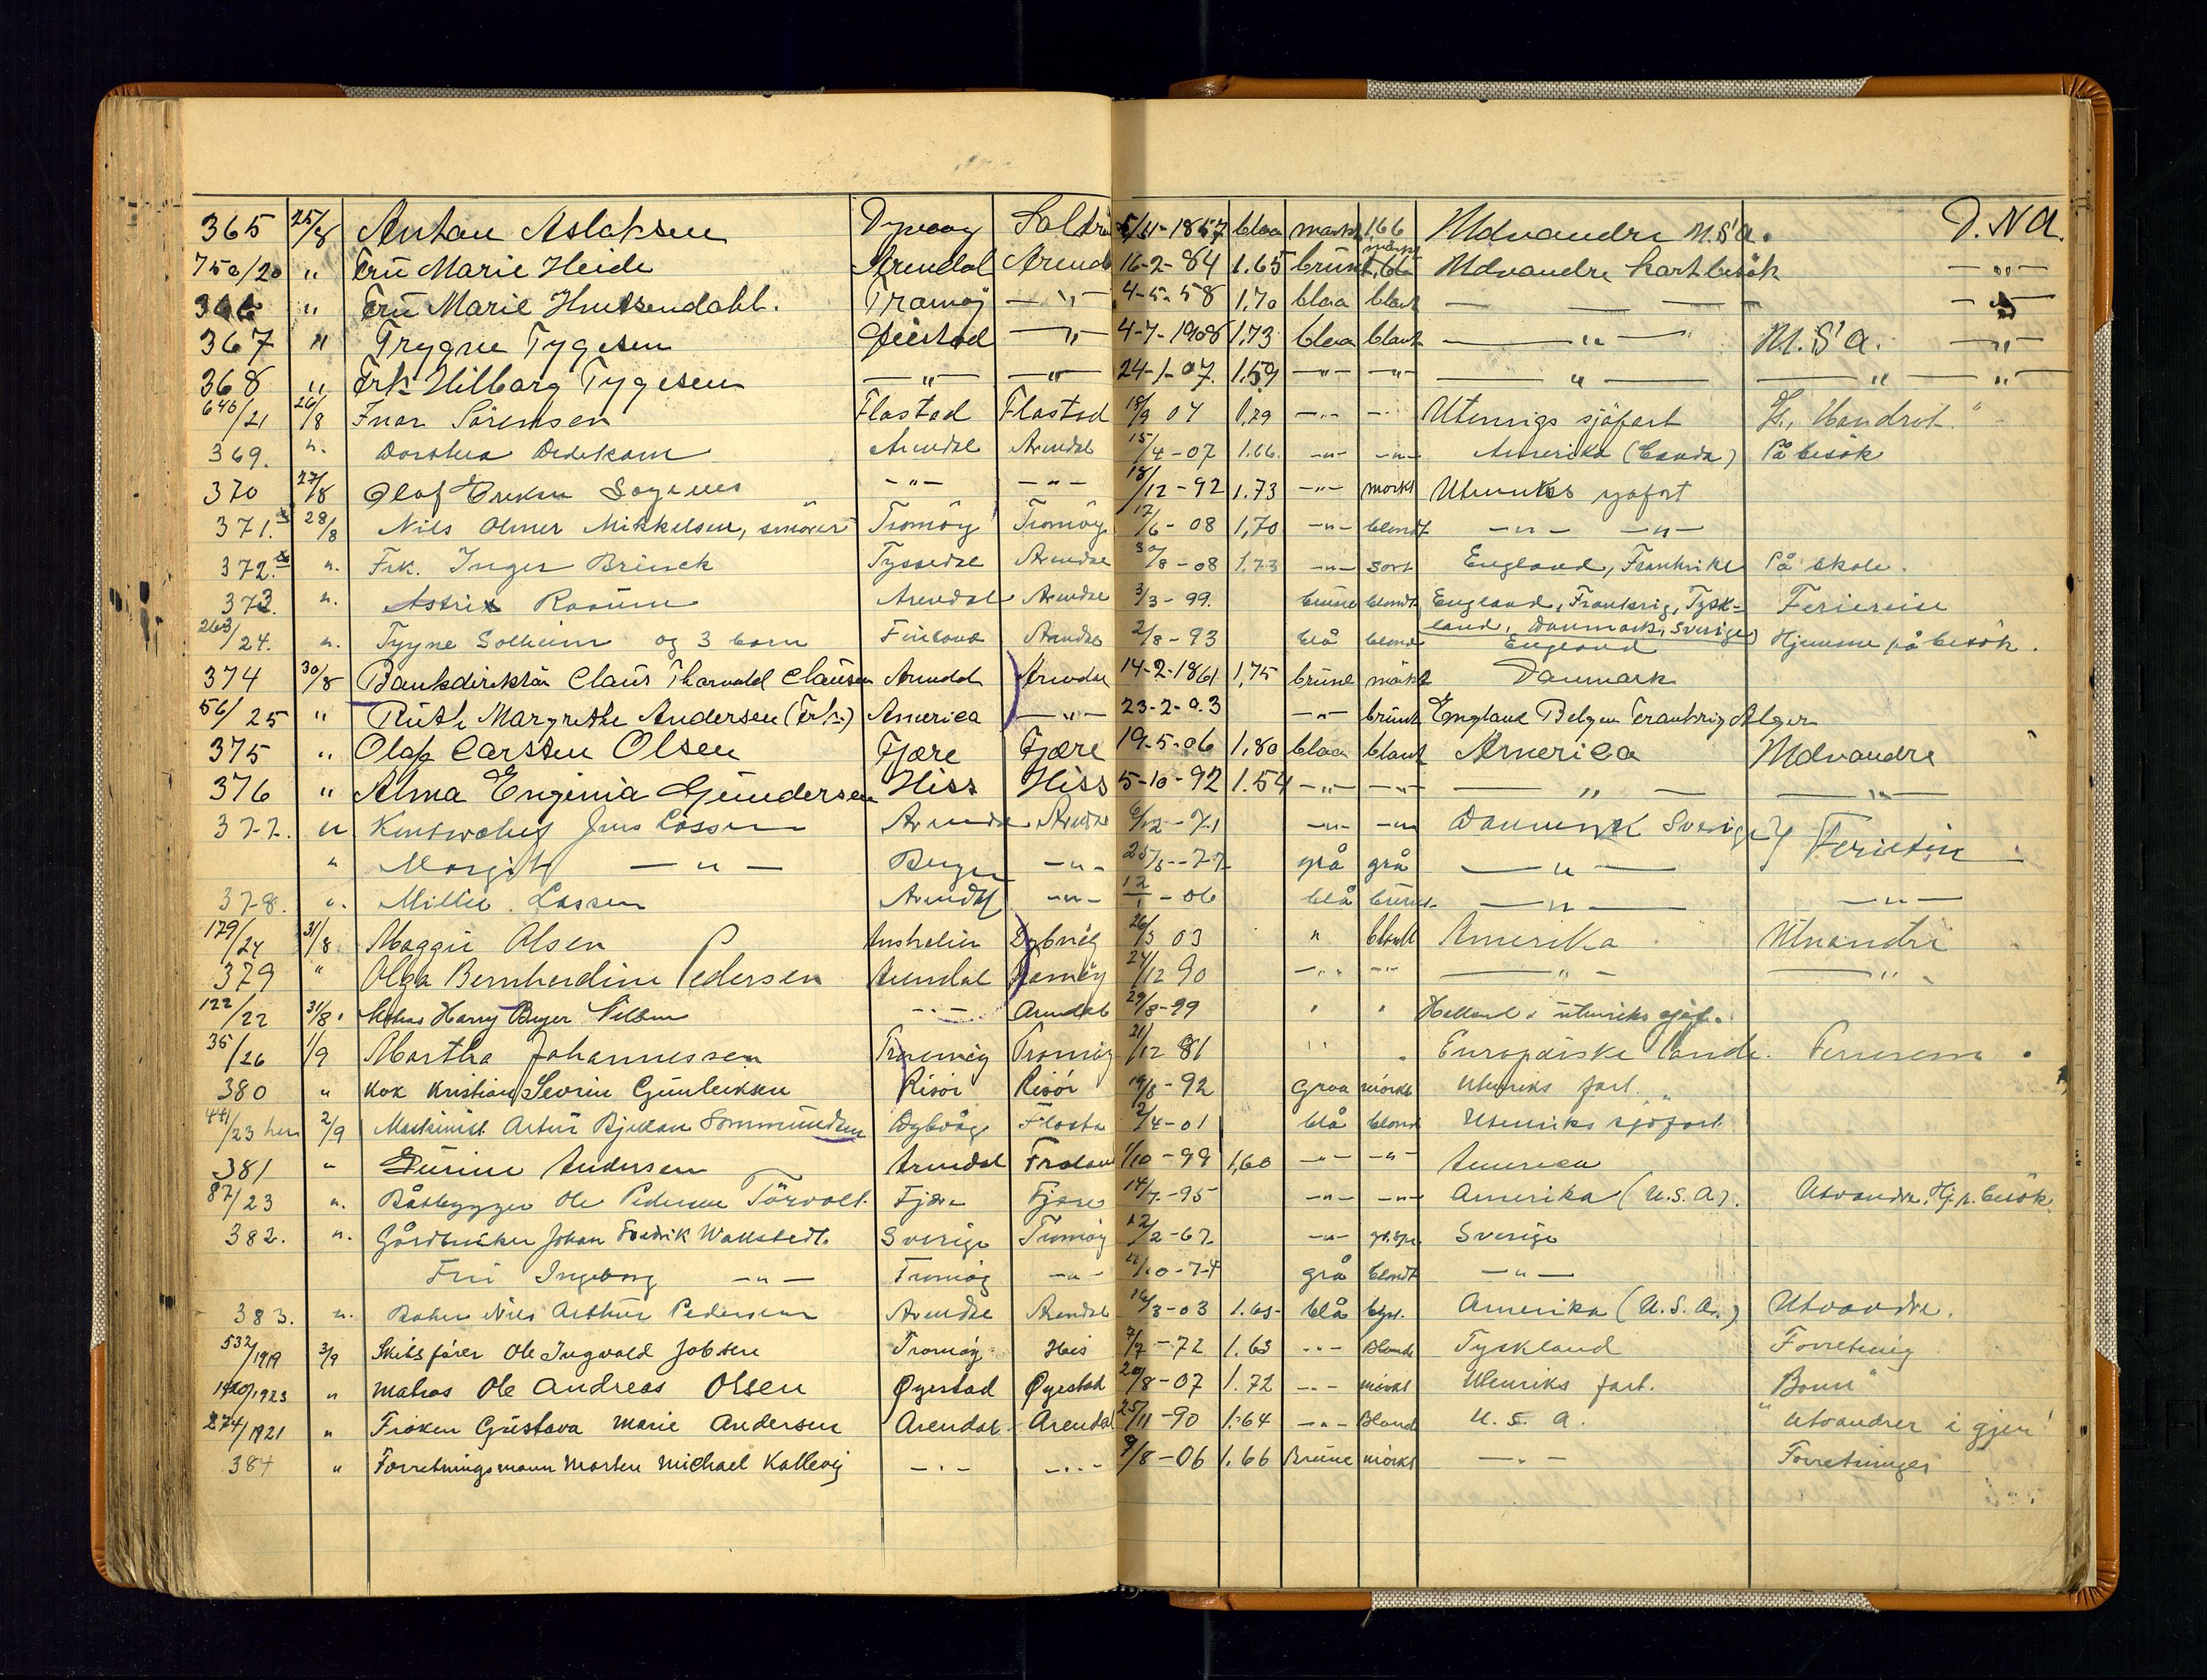 365 25/8 Anton Aslaksen Dypvaag 5/11-1857 blaa mørk 1.66 Udvandre U.S.A. D.N.A.
750/20 " Fru Marie Heide Arendal Arendal 16-2-84 1.65 brune Udvandre kort besøk —"—
366 " Fru Marie Knutsendahl. Tromøy —"— 4-5-58 1.70 blaa blont — —
367 " Trygve Tygesen Øiestad —"— 4-7-1908 1.73 blaa blont —"— U.S.A. —"—
368 " Frk. Tygesen —"— —"— 24-1-07. 1.59 —"— —"— —"— —"— "—
640/21 26/8 Ivar Sørensen Flostad Flostad 18/9 04 —"— — Utenrigs sjøfart
369. ". Dorthea Arendal Arendal 15/4-07 1.66. —"— —"— Amerika På besök
370 27/8 Olaf —"— —"— 18/12-92 1.73 —"— mørkt Utenriks
371. 28/8 Nils Olmer Mikkelsen, smører Tromöy Tromöy 17/6-08 1,70 —"— blondt —"— —"—
372. ". Frk. Inger Brinck Tyssedal Arendal 30/8-08 1.73 —"— sort England, Frankrike På skole.
373. ". Arendal Arendal 3/3-99. brune blondt England, Frankrig, Tysk- Feriereise
land, Danmark, Sverige
263/24. ". Solheim og 3 barn Finland Arendal 2/8-93 blå blond England Hjemme på besök.
374 30/8 Bankdirektør Claus Thorvald Clausen Arendal Arendal 14-2-1861. 1,75 brune mørkt Danmark
56/25 " Ruth Margrethe Andersen (Frk.) America —"— 23-2-03 —"— brunt England Belgien Frankrig Alger
375 " Olaf Carsten Olsen Fjære Fjære 19-5-06 1.80 blaa blont America Udvandre
376 " Alma Engenia Gundersen Hiss Hiss 5-10-92 1.54 —"— —"— —"— —"—
377. " Jens Lassen Arendal Arendal 6/12-71 —"— —"— Danmark Sverige
" Margit —"— Bergen —"— 25/5-77 grå grå —"—
378. ". Millie Lassen Arendal —"— 12/-06 blå —"— —"—
179/24 31/8 Maggie Olsen Australien 26/3 03 " blont Amerika Utvandre
379 " Olga Bernhardine Pedersen Arendal Tromöy 24/12 90 —"— —"— —"— —"—
122/22 31/8. Harry —"— Arendal 29/8-99 " " utenriks sjøf.
35/26 1/9 Martha Johannessen Tromöy Tromöy 21/12 81 " " Europæiske lande. Feriereise
380 " Kok Kristian Severin Gunleiksen Risör Risör 19/8-92 Graa mörkt Utenriks fart.
441/23 2/9 Maskinist Artur Bjerkan Sommundsen Dybvåg Flosta 2/4-01 blå blond Utenriks sjöfart.
381 " Andersen Arendal Froland 1/10-99 1,60 —"— —"— America
87/23 ". Båtbygger Ole Pedersen Fjære Fjære 14/7-95 —"— —"— Amerika (U.S.A). Utvandre. Hj. p. besök.
382. ". Gårdbruker Johan Fredrik Wallstedt. Sverige Tromöy 12/2-67 —"— Sverige
Fru Ingeborg —"— Tromöy —"— /10-74 grå blondt —"—
383. ". Baker Nils Arthur Pedersen Arendal Arendal 16/3-03 1.65- blå lyst. Amerika (U.S.A.) Utvandre.
532/1919 3/9 Skibsförer Ole Ingvald Jobsen Tromöy His 7/7-72 1.63 —"— Blond Tyskland Forretning
1420/1923 " Matros Ole Andreas Olsen Øyestad Øyestad 20/8-07 1.72 —"— mörkt Utenriks fart.
274/1921 " Fröken Gustava Marie Andersen Arendal Arendal 25/11-90 1.64 —"— Blond U.S.A. Utvandrer i gjen
384 " Forretningsmann Morten Michael Kallevig —"— —"— 9/8-06 1.66 Brune mörkt —"— Forretninger